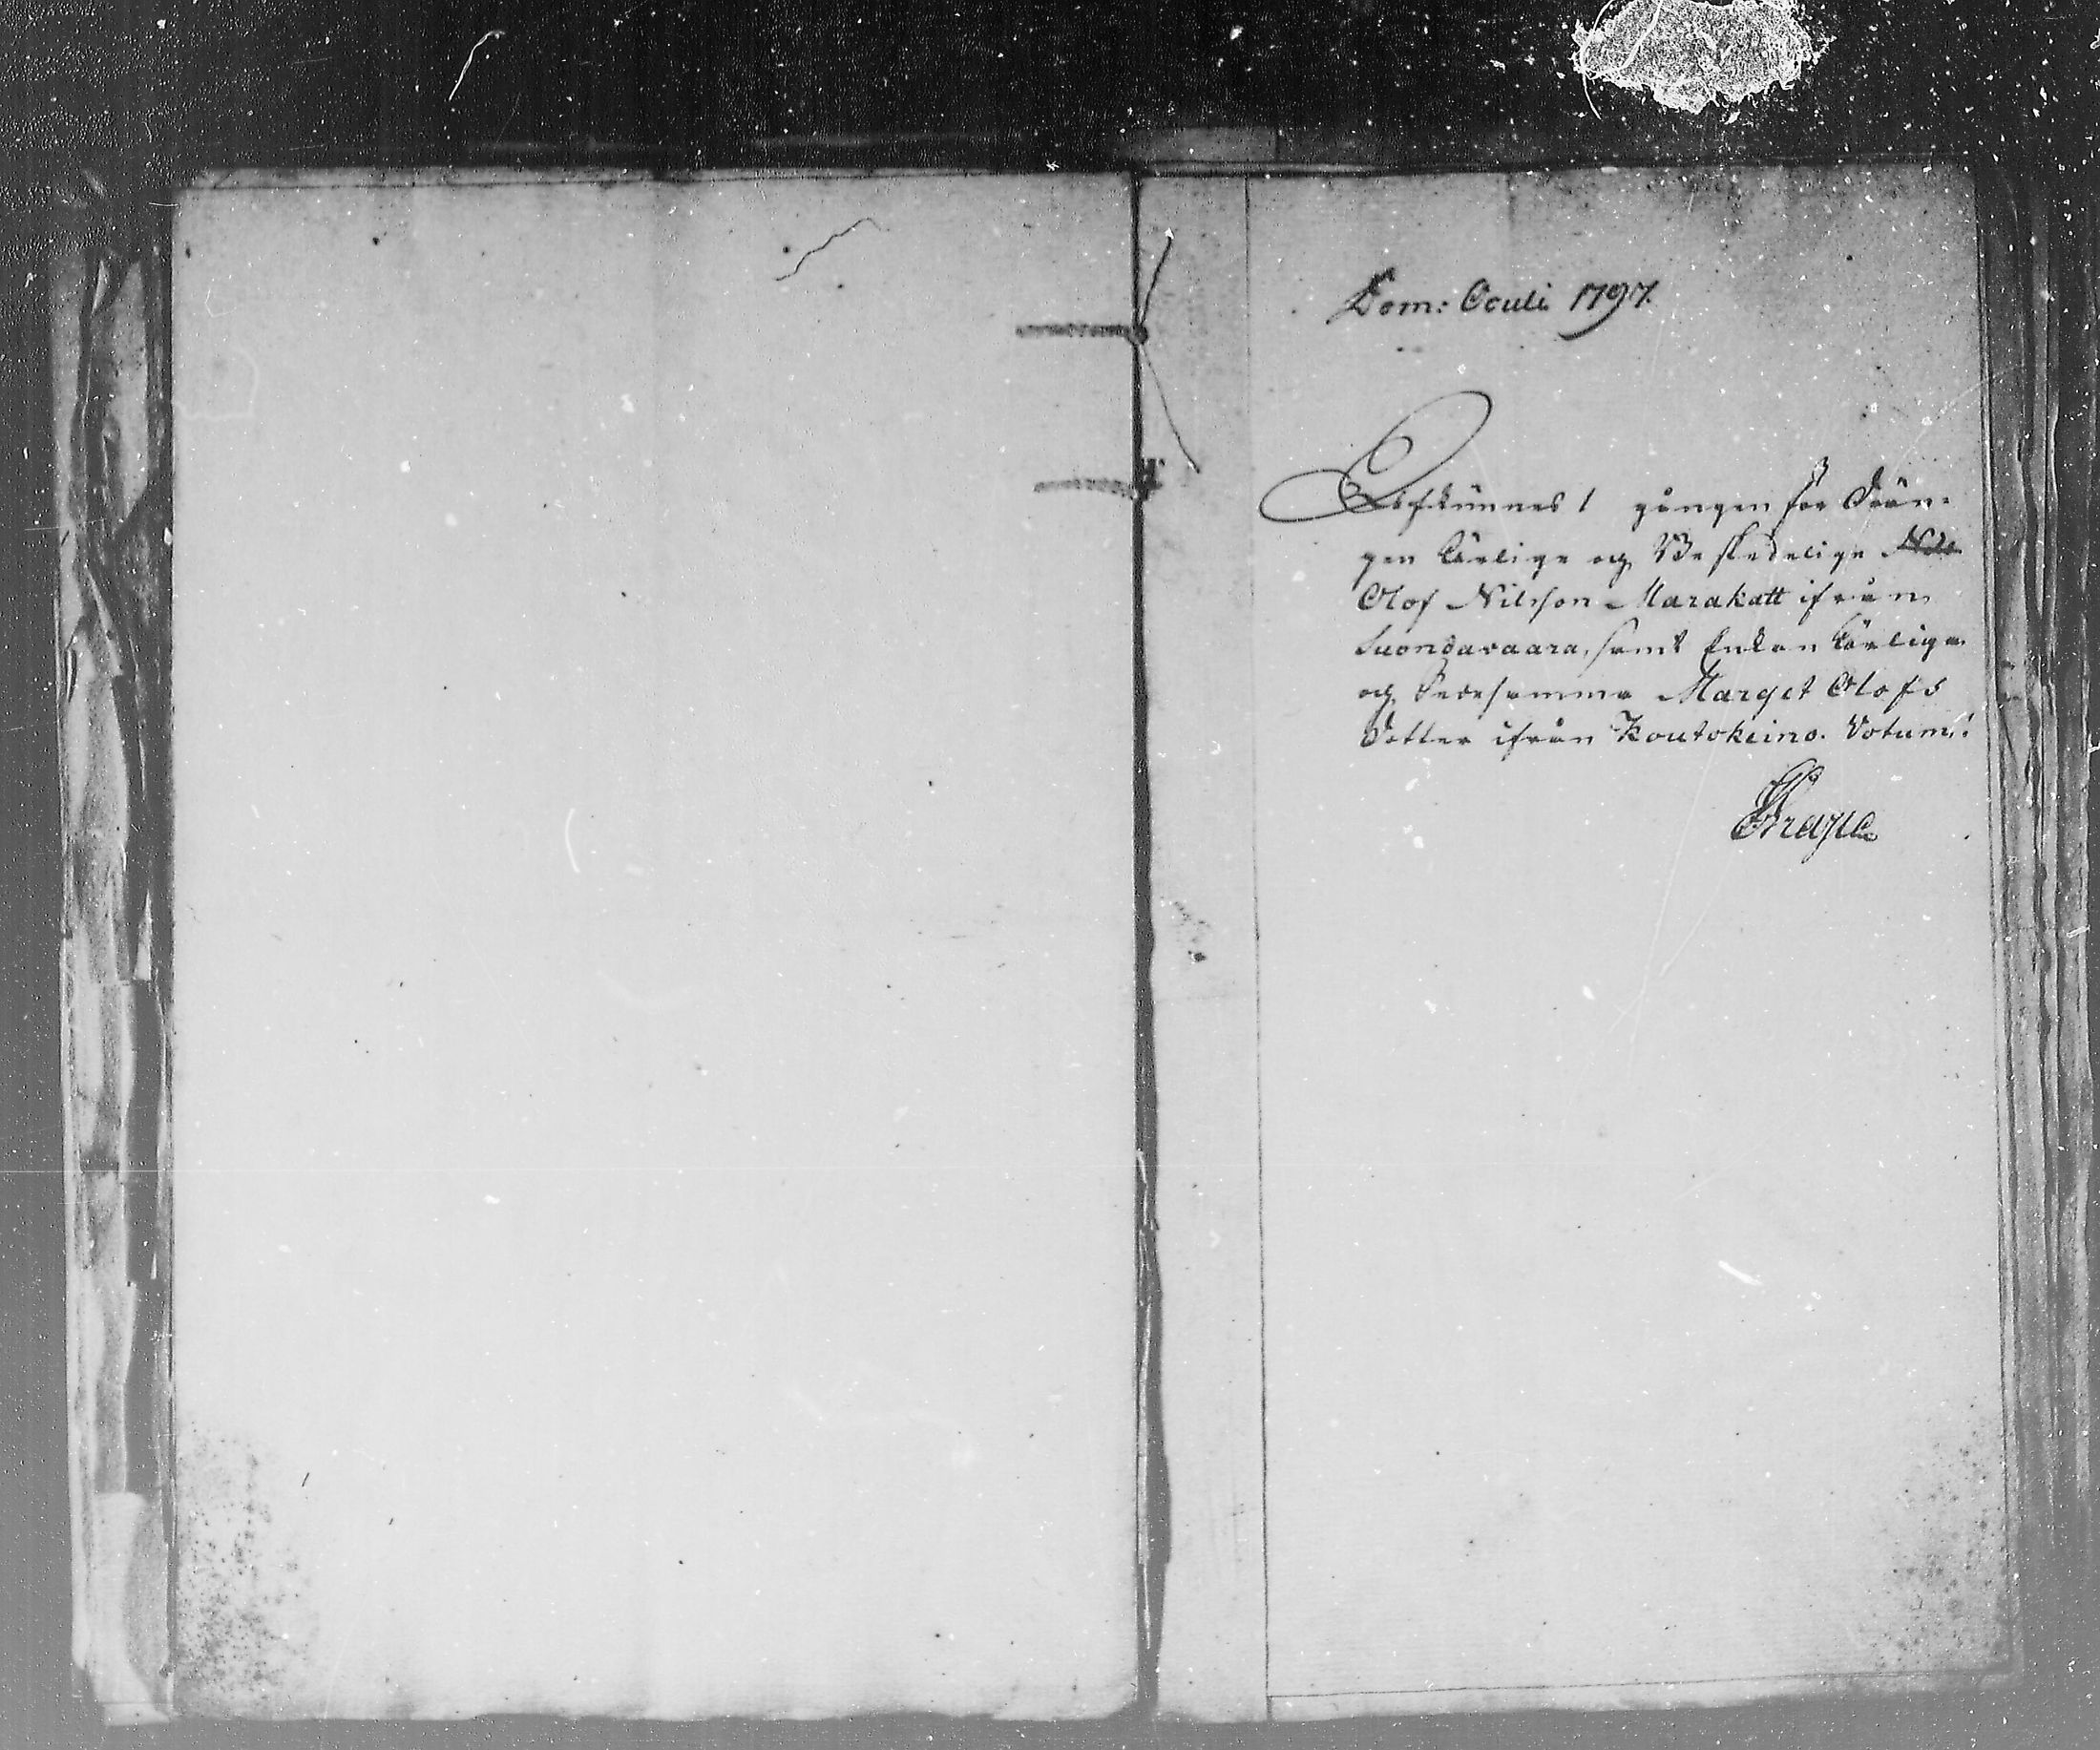 Dom: Oculi 1797.
Afkunnes 1 gången för Drän-
gen Ärlige och Beskedelige
Olof Nilsson Marakatt ifrån
Suondavaara, samt Enkan Ärliga
och Sedesamma Marget Olofs
Dotter ifrån Koutokeino. Votum!